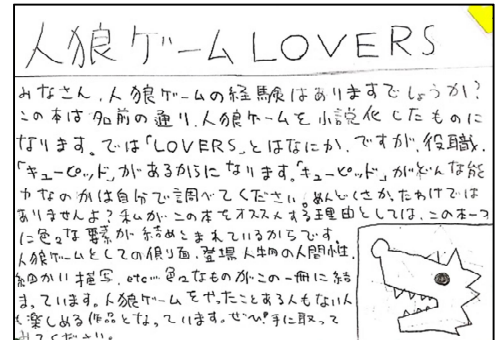 人狼ゲームLOVERS
みなさん、人狼ゲームの経験はありますでしょうか?
この本は名前の通り、人狼ゲームを小説化したものに
なります。では「LOVERS」とはなにか、ですが、役職、
「キューピッド」があるからになります。「キューピッド」がどんな能
力なのかは自分で調べてください。めんどくさかったわけでは
ありませんよ?私がこの本をオススメする理由としては、この本一つ
に色々な要素が結めこまれているからです。
人狼ゲームとしての側面、登場人物の人間性、
細かい描写、etc…色々なものがこの一冊に結
まっています。人狼ゲームをやったことある人もない人
も楽しめる作品となっています。ぜひ!手に取って
みてください。